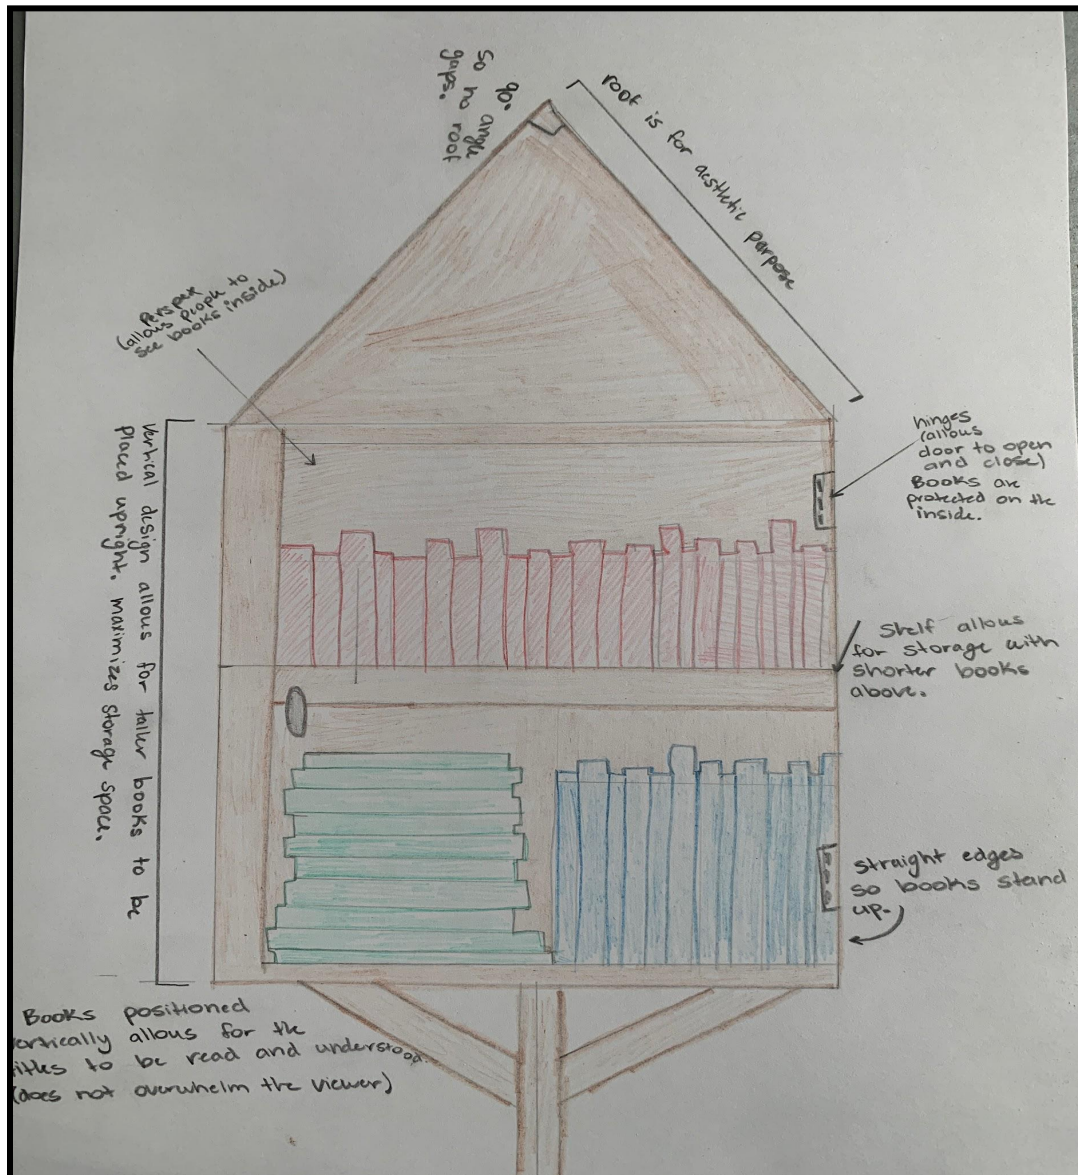 90° angle
so no roof
gaps.
roof is for aesthetic purpose
Perspex
(allows people to
see books inside)
hinges
(allows
door to open
and close)
Books are
protected on the
inside.
Vertical design allows for taller books to be
placed upright. maximizes storage space.
Shelf allows
for storage with
shorter books
above.
straight edges
so books stand
up.
Books positioned
vertically allows for the
titles to be read and understood.
(does not overwhelm the viewer)